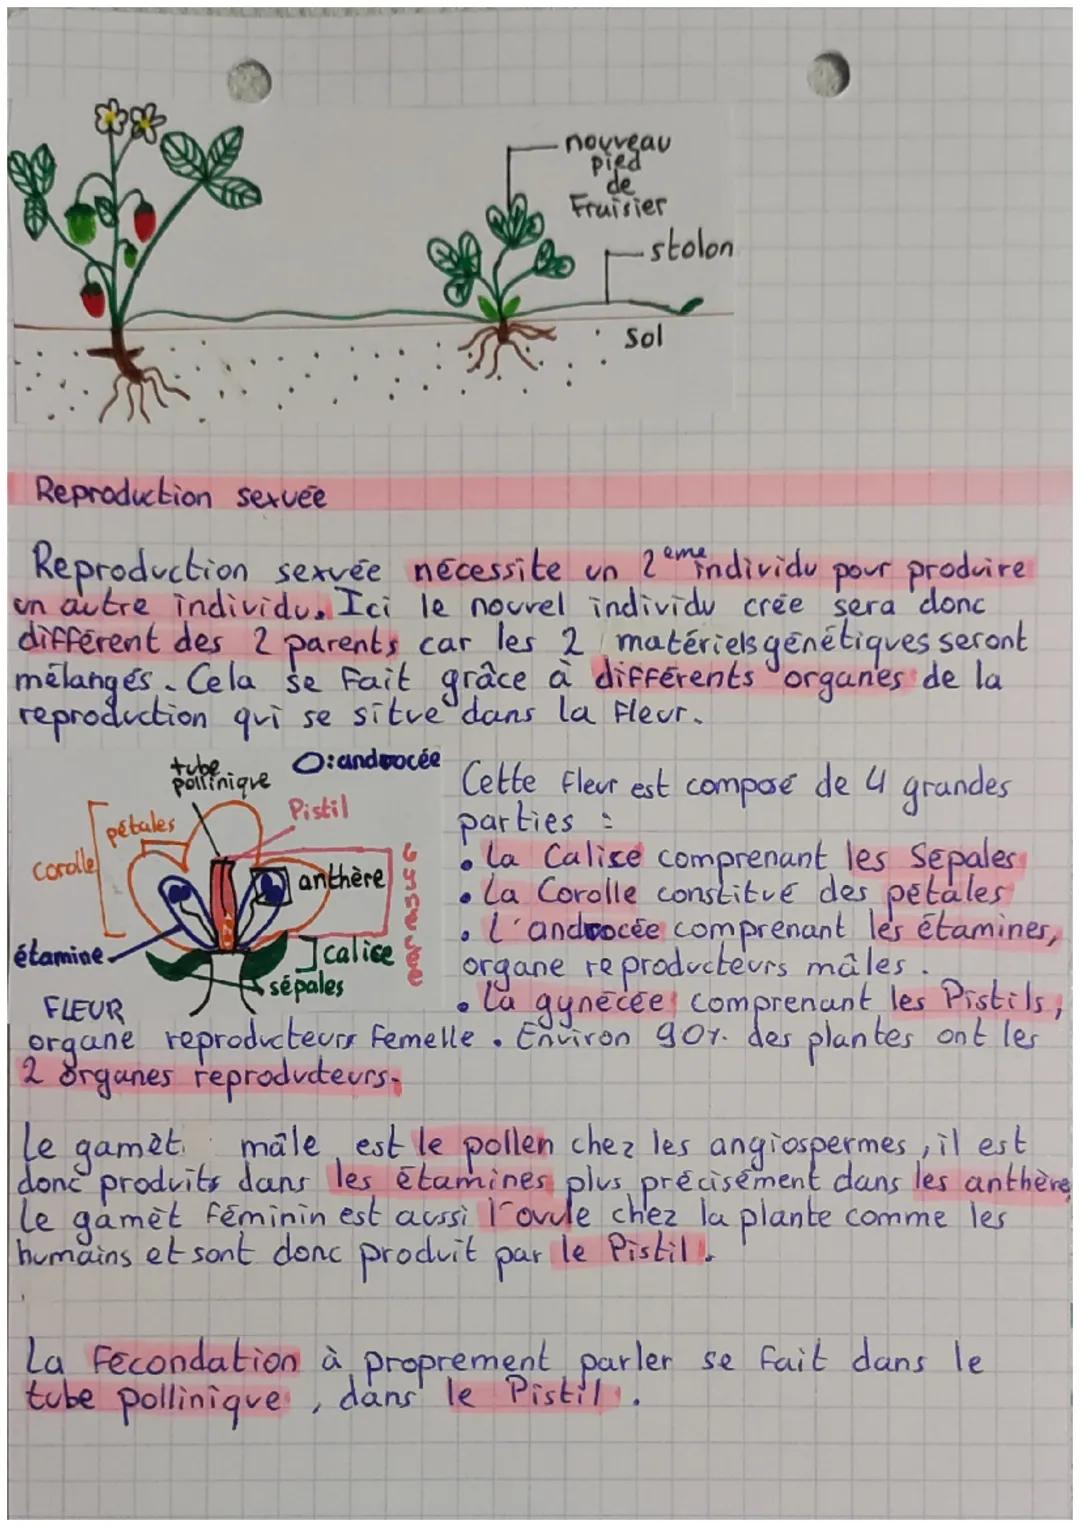 nouveau
pied
de
Fraisier
stolon
Sol
Reproduction sexuée
Reproduction sexuée nécessite un 2ème individu pour produire
un autre individu. Ici le nouvel individu crée sera donc
différent des 2 parents car les 2 matériels génétiques seront
mélangés. Cela se fait grâce à différents organes de la
reproduction qui se situe dans la fleur.
tube
pollinique
O: androcée
Pistil
pétales
corolle
anthère
Gynécée
étamine
calice
sépales
FLEUR
Cette fleur est composé de 4 grandes
parties :
• La Calice comprenant les Sépales
• La Corolle constitué des pétales
• L'androcée comprenant les étamines,
organe reproducteurs mâles.
• La gynécée comprenant les Pistils,
organe reproducteurs femelle. Environ 90% des plantes ont les
2 organes reproducteurs.
Le gamèt mâle est le pollen chez les angiospermes, il est
donc produits dans les étamines plus précisément dans les anthère
Le gamèt féminin est aussi l'ovule chez la plante comme les
humains et sont donc produit par le Pistil.
La Fécondation à proprement parler se fait dans le
tube pollinique, dans le Pistil.